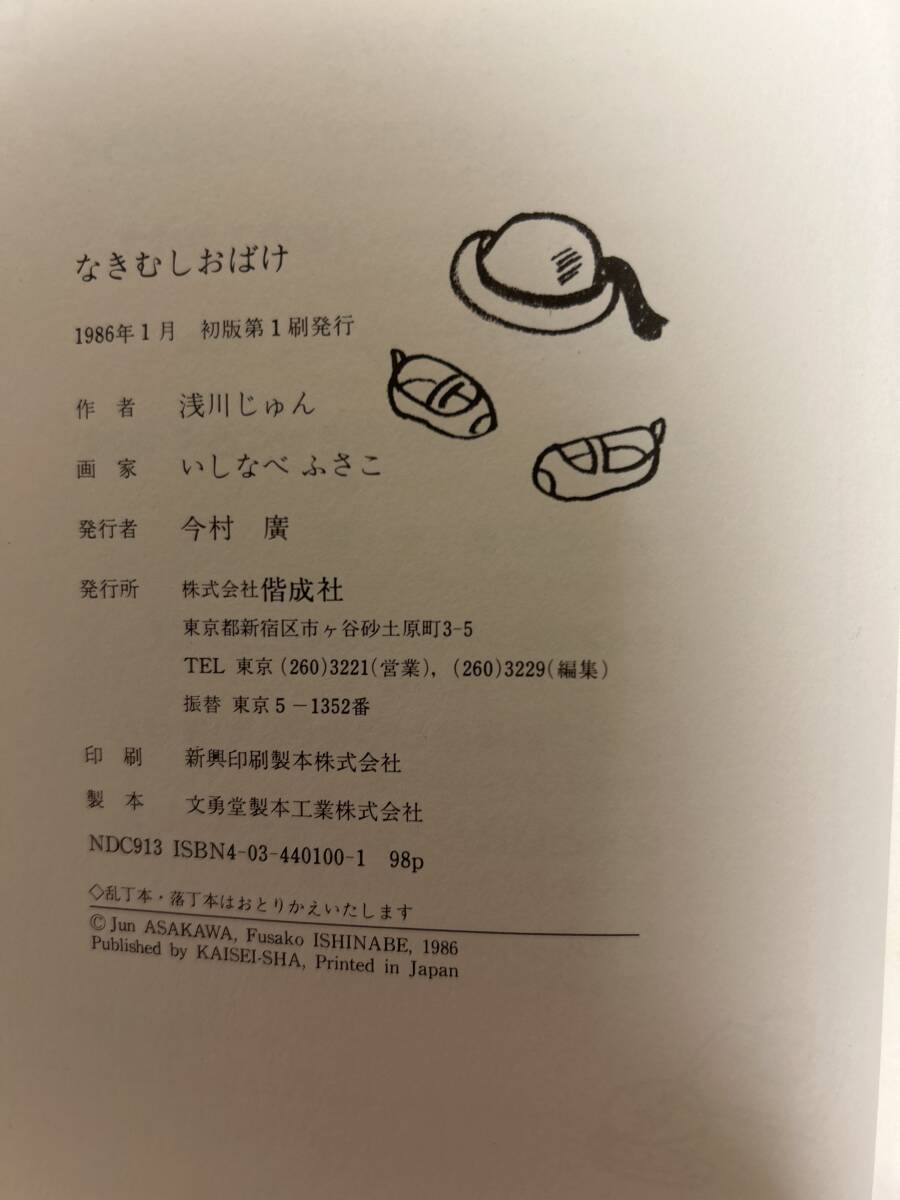 なきむしおばけ
1986年1月　初版第1刷発行
作　者　浅川じゅん
画　家　いしなべ ふさこ
発行者　今村　廣
発行所　株式会社偕成社
東京都新宿区市ヶ谷砂土原町3-5
TEL 東京(260)3221(営業), (260)3229(編集)
振替 東京5-1352番
印　刷　新興印刷製本株式会社
製　本　文勇堂製本工業株式会社
NDC913 ISBN4-03-440100-1　98p
◇乱丁本・落丁本はおとりかえいたします
© Jun ASAKAWA, Fusako ISHINABE, 1986
Published by KAISEI-SHA, Printed in Japan